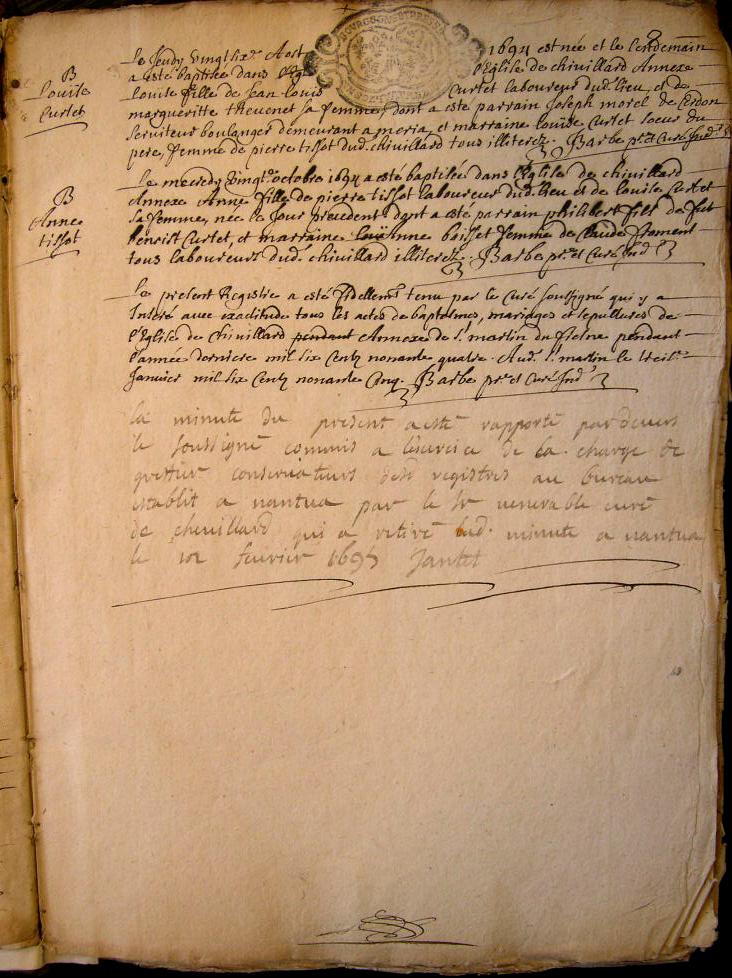 B
Louise
Curtet
Le Jeudy vingt six.e Aost 1694 est née et le lendemain
a esté baptisée dans l'Eglise de chivillard Annexe
Louise fille de Jean Louis Curtet laboureur dud. lieu, et de
margueritte thevenet sa femme, dont a esté parrain Joseph morel de Cerdon
serviteur boulanger demeurant a meria, et marraine Louise Curtet soeur du
pere, femme de pierre tissot dud. chivillard tous illiterez. Barbe p.re et Curé
B
Anne
tissot
Le mecredy vingt.e octobre 1694 a esté baptisée dans l'Eglise de chivillard
Annexe Anne fille de pierre tissot laboureur dud. lieu et de louise Curtet
sa femme, née le Jour precedent dont a esté parrain philibert fils de feu
benoist Curtet, et marraine boisset femme de Claude froment
tous laboureurs dud. chivillard illiterez. Barbe p.re et Curé
Le present Registre a esté fidellem.t tenu par le Curé soussigné qui y a
Inseré avec exactitude tous les actes de baptesmes, mariages et sepultures de
l'Eglise de chivillard pendant Annexe de s.t martin du fresne pendant
l'année derniere mil six Centz nonante quatre. Aud. s.t martin le
Janvier mil six Centz nonante Cinq. Barbe p.re et Curé
La minute du present a esté rapporté pardevers
le soussigné commis a lexercise de la charge de
greffier conservateur des registres au bureau
establit a nantua par le sr venerable curé
de chevillard qui a retiré lad. minute a nantua
le fevrier 1695 Jantet